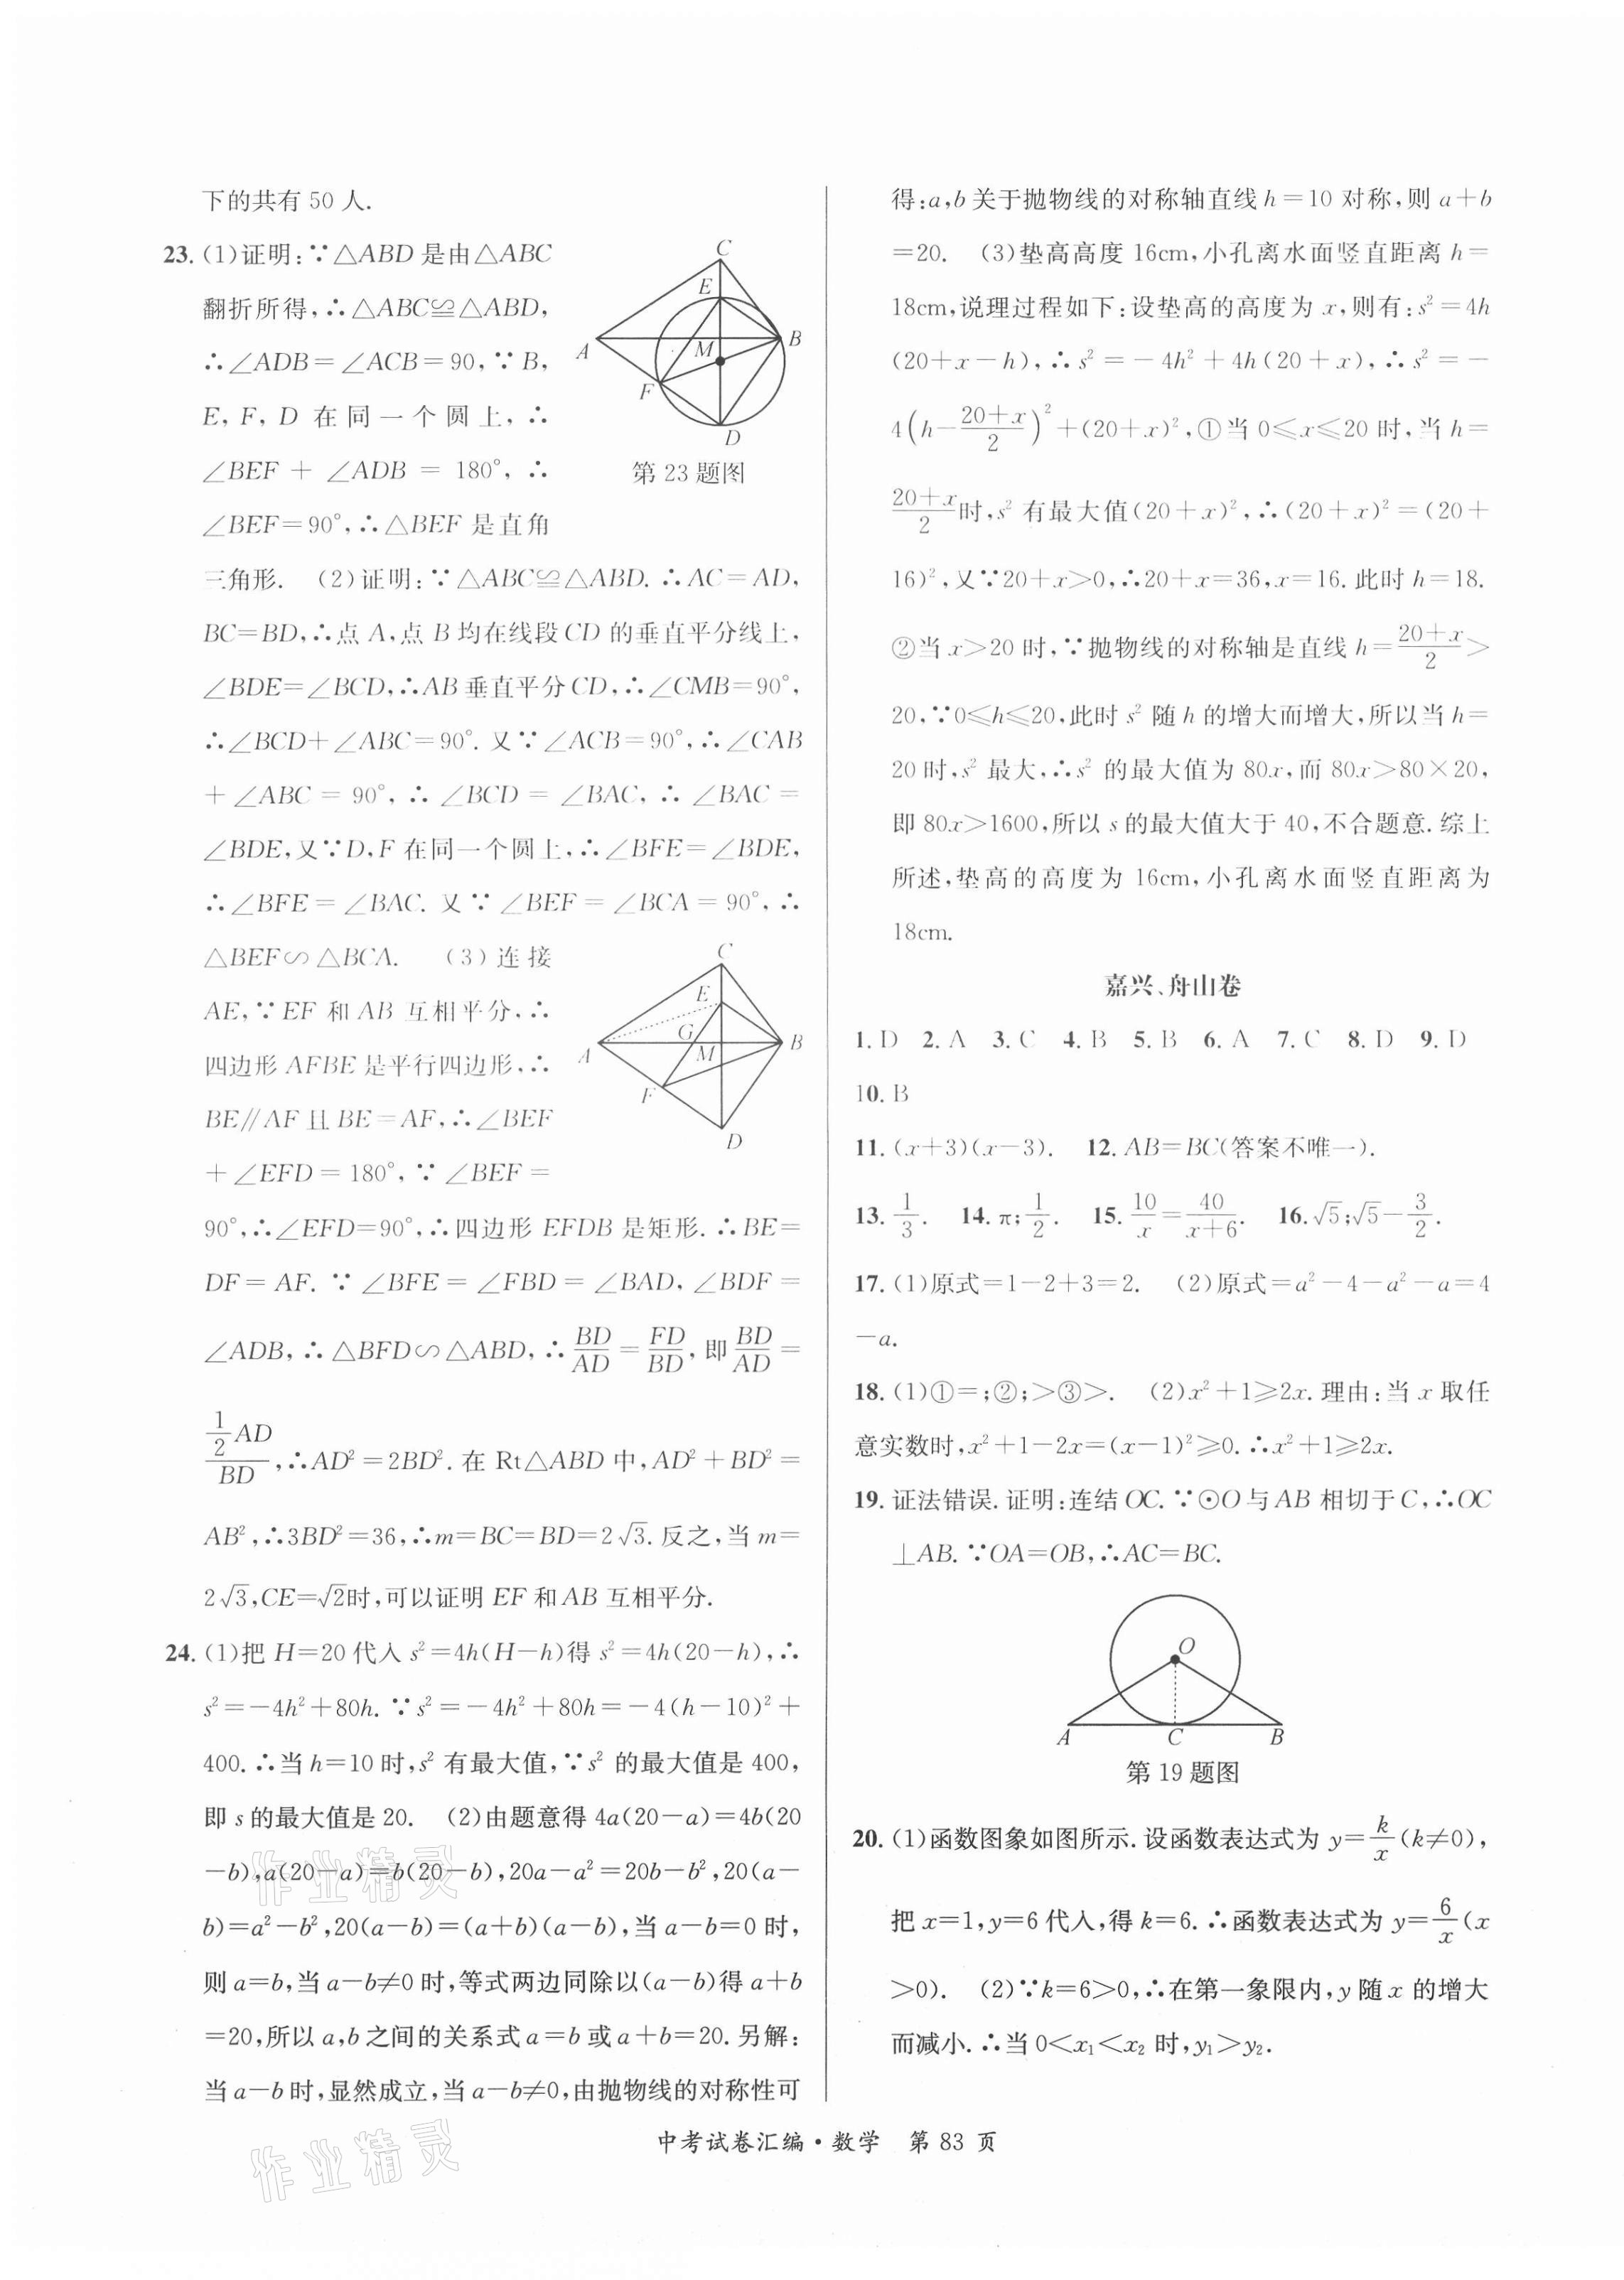 下的共有 50 人.
23. (1)证明:∵△ABD 是由△ABC
翻折所得,∴△ABC≌△ABD,
∴∠ADB=∠ACB=90,∵B,
E, F, D 在同一个圆上,∴
∠BEF + ∠ADB = 180°, ∴
∠BEF=90°,∴△BEF 是直角
C
E
A
M
B
F
D
第 23 题图
三角形. (2)证明:∵△ABC≌△ABD.∴AC=AD,
BC=BD,∴点 A,点 B 均在线段CD 的垂直平分线上,
∠BDE=∠BCD,∴AB垂直平分CD,∴∠CMB=90°,
∴∠BCD+∠ABC=90°. 又∵∠ACB=90°,∴∠CAB
+∠ABC = 90°, ∴ ∠BCD = ∠BAC, ∴ ∠BAC =
∠BDE,又∵D,F 在同一个圆上,∴∠BFE=∠BDE,
∴∠BFE=∠BAC. 又∵∠BEF=∠BCA=90°,∴
△BEF∽△BCA. (3)连接
AE,∵EF 和 AB 互相平分,∴
四边形 AFBE 是平行四边形,∴
BE∥AF 且 BE=AF,∴∠BEF
+∠EFD=180°,∵∠BEF=
C
E
G
A
M
B
F
D
90°,∴∠EFD=90°,∴四边形 EFDB 是矩形.∴BE=
DF=AF. ∵∠BFE=∠FBD=∠BAD,∠BDF=
∠ADB,∴△BFD∽△ABD,∴BD/AD=FD/BD,即BD/AD=
(1/2 AD)/BD,∴AD²=2BD².在 Rt△ABD 中,AD²+BD²=
AB²,∴3BD²=36,∴m=BC=BD=2√3.反之,当 m=
2√3,CE=√2时,可以证明 EF 和AB 互相平分.
24. (1)把 H=20 代入 s²=4h(H-h)得 s²=4h(20-h),∴
s²=-4h²+80h.∵s²=-4h²+80h=-4(h-10)²+
400.∴当h=10 时,s² 有最大值,∵s² 的最大值是 400,
即 s的最大值是 20. (2)由题意得 4a(20-a)=4b(20
-b),a(20-a)=b(20-b),20a-a²=20b-b²,20(a-
b)=a²-b²,20(a-b)=(a+b)(a-b),当 a-b=0 时,
则 a=b,当 a-b≠0 时,等式两边同除以(a-b)得 a+b
=20,所以 a,b之间的关系式 a=b 或 a+b=20.另解:
当 a-b时,显然成立,当 a-b≠0,由抛物线的对称性可
得:a,b关于抛物线的对称轴直线h=10 对称,则 a+b
=20. (3)垫高高度 16cm,小孔离水面竖直距离 h=
18cm,说理过程如下:设垫高的高度为 x,则有:s²=4h
(20+x-h),∴s²=-4h²+4h(20+x),∴s²=-
4(h-(20+x)/2)²+(20+x)²,①当 0≤x≤20 时,当 h=
(20+x)/2时,s² 有最大值(20+x)²,∴(20+x)²=(20+
16)²,又∵20+x>0,∴20+x=36,x=16.此时h=18.
②当 x>20 时,∵抛物线的对称轴是直线h=(20+x)/2>
20,∵0≤h≤20,此时 s² 随 h 的增大而增大,所以当 h=
20 时,s² 最大,∴s² 的最大值为 80x,而 80x>80×20,
即 80x>1600,所以 s的最大值大于 40,不合题意.综上
所述,垫高的高度为 16cm,小孔离水面竖直距离为
18cm.
嘉兴、舟山卷
1. D 2. A 3. C 4. B 5. B 6. A 7. C 8. D 9. D
10. B
11. (x+3)(x-3). 12. AB=BC(答案不唯一).
13. 1/3. 14. π;1/2. 15. 10/x=40/(x+6). 16. √5;√5-3/2.
17. (1)原式=1-2+3=2. (2)原式=a²-4-a²-a=4
-a.
18. (1)①=;②;>③>. (2)x²+1≥2x.理由:当 x 取任
意实数时,x²+1-2x=(x-1)²≥0.∴x²+1≥2x.
19. 证法错误.证明:连结 OC.∵⊙O与AB 相切于C,∴OC
⊥AB.∵OA=OB,∴AC=BC.
O
A
C
B
第 19 题图
20. (1)函数图象如图所示.设函数表达式为 y=k/x(k≠0),
把 x=1,y=6 代入,得 k=6.∴函数表达式为 y=6/x(x
>0). (2)∵k=6>0,∴在第一象限内,y 随 x 的增大
而减小.∴当 0<x₁<x₂ 时,y₁>y₂.
中考试卷汇编·数学 第 83 页
作业精灵
作业精灵